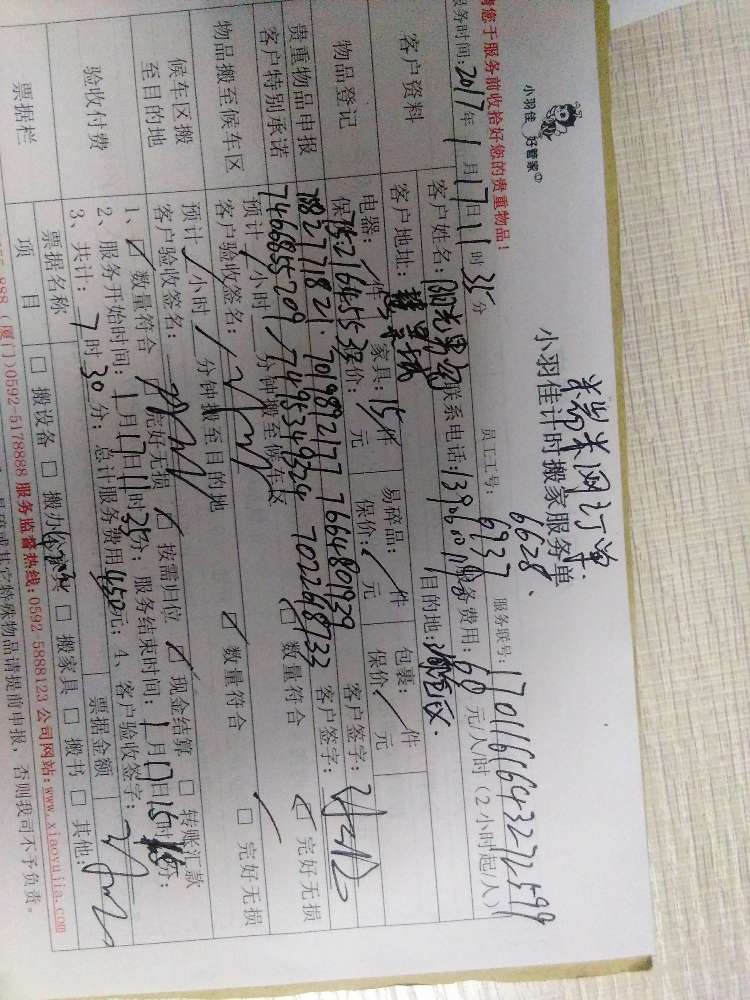 糯米网订单
小羽佳 好管家
小羽佳计时搬家服务单
6628、
请您于服务前收拾好您的贵重物品！
员工工号：6737 服务联号：1701161643272599
服务时间：2017年1月17日11时35分
服务费用：60元/人/时（2小时起/人）
客户资料
客户姓名：阳光男孩 联系电话：
客户地址： 目的地：
物品登记
电器：/件 家具：15件 易碎品：/件 包裹：/件
保价： 元 保价：/元 保价：/元 客户签字：
75216455
7882771821 7019892177 7664801929 客户签字：
贵重物品申报
客户特别承诺
7466855209 7495349324 7022968733
物品搬至候车区
预计/小时/分钟搬至候车区 数量符合 完好无损
客户验收签名：
候车区搬
至目的地
预计/小时/分钟搬至目的地 数量符合 完好无损
客户验收签名：
验收付费
1、 数量符合 完好无损 按需归位 现金结算 转账汇款
2、服务开始时间：1月17日11时35分；服务结束时间：1月17日15时 分；
3、共计：7时30分；总计服务费用450元；4、客户验收签字：
票据栏
票据名称 票据金额
项目 搬设备 搬办公家具 搬家具 搬书 其他：
888（厦门)0592-5178888 服务监督热线：0592-5888123 公司网站：www.xiaoyujia.com
其它特殊物品请提前申报，否则我司不予负责。